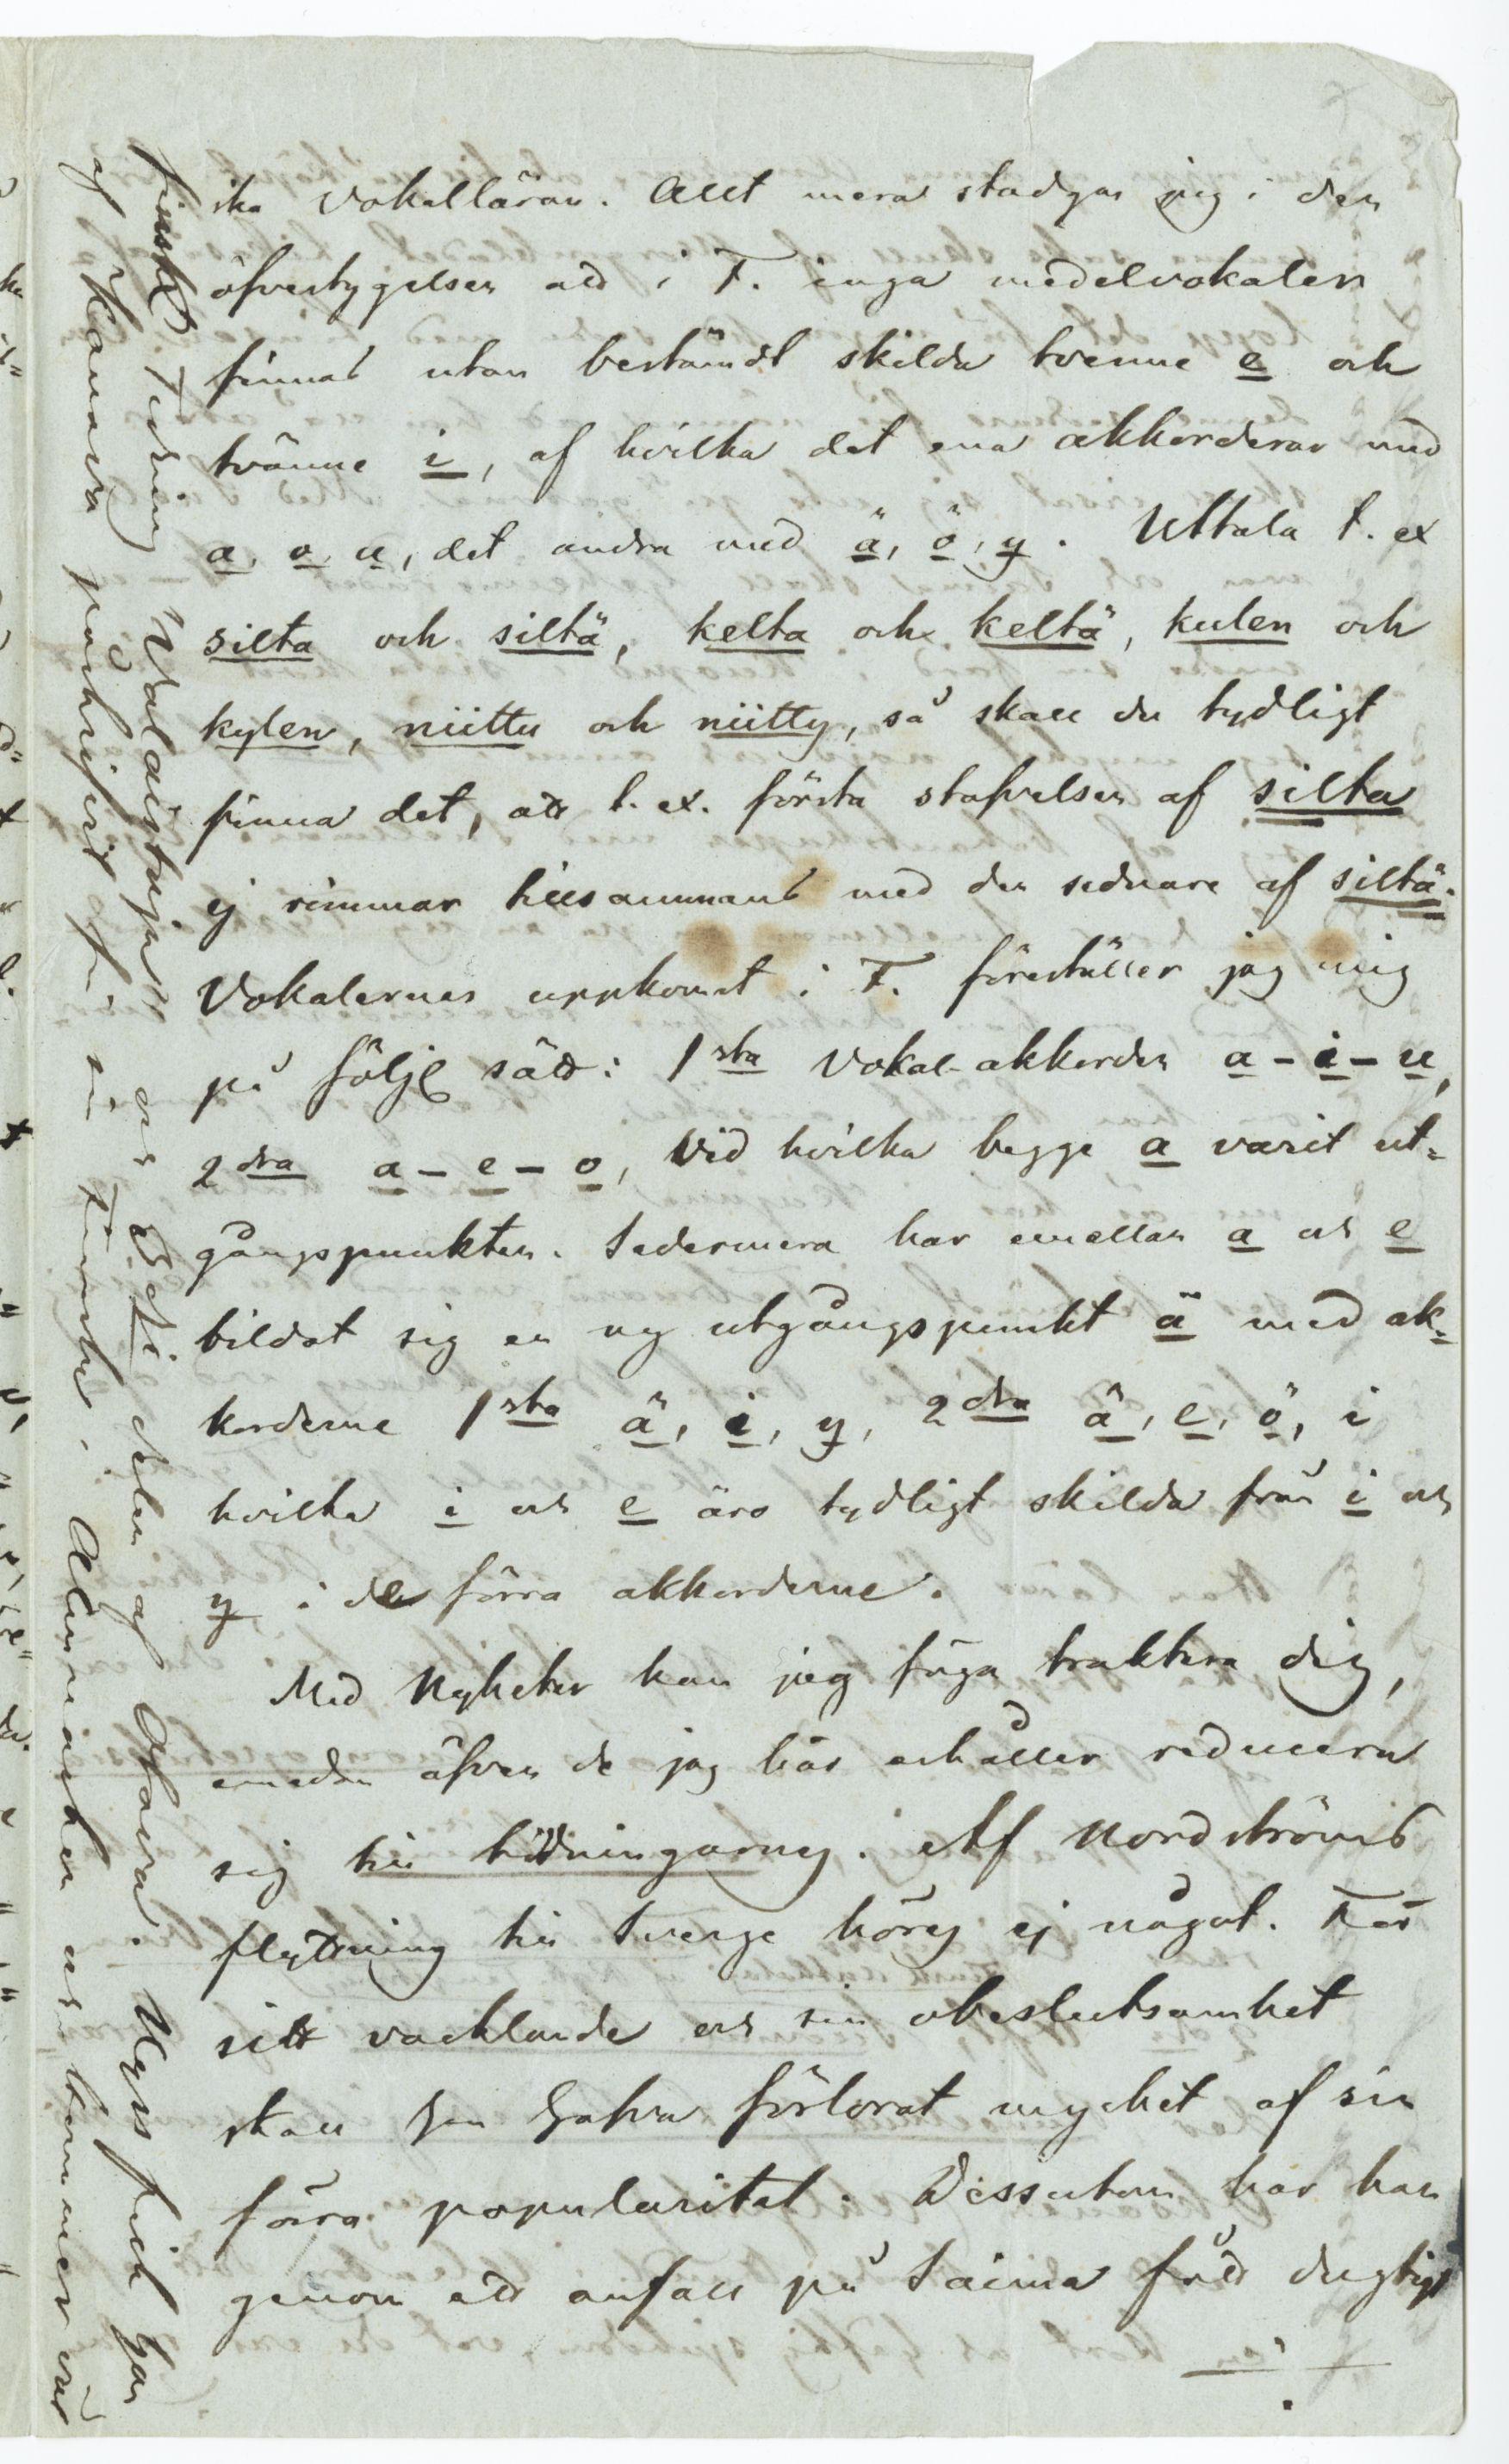 ska vokalläran. Allt mera stadgas jag i den
öfvertygelsen att i F. inga medelvokaler
finnas utan bestämdt skilda tvenne e och
tvänne i, af hvilka det ena akkorderar med
a, o, u, det andra med ä, ö, y. Uttala t. ex
silta och siltä, kelta och keltä, kulen och
kylen, niittu och niitty, så skall du tydligt
finna det, att t. ex. första stafvelsen af silta
ej rimmar tillsammans med den sednare af siltä.
Vokalernas uppkomst i F. föreställer jag mig
på följe sätt: 1sta vokal-akkorden a – i – u,
2dra a – e – o, vid hvilka begge a varit ut=
gångspunkten. Sedermera har emellan a och e
bildat sig en ny utgångspunkt ä med ak=
korderne 1sta ä, i, y, 2dra ä, e, ö, i
hvilka i och e äro tydligt skilda från i och
y i de förra akkorderne.
Med Nyheter kan jag föga traktera dig,
emedan äfven de jag här erhåller reducera
sig till tidningarne. Af Nordströms
flyttning till Sverge höres ej något. För
sitt vacklande och sin obeslutsamhet
skall han hafva förlorat mycket af sin
förra popularitet. Dessutom har han
genom ett anfall på Saima fått dugtigt
finsk Tidning och delen af
af Kanava på finska. och kommer väl